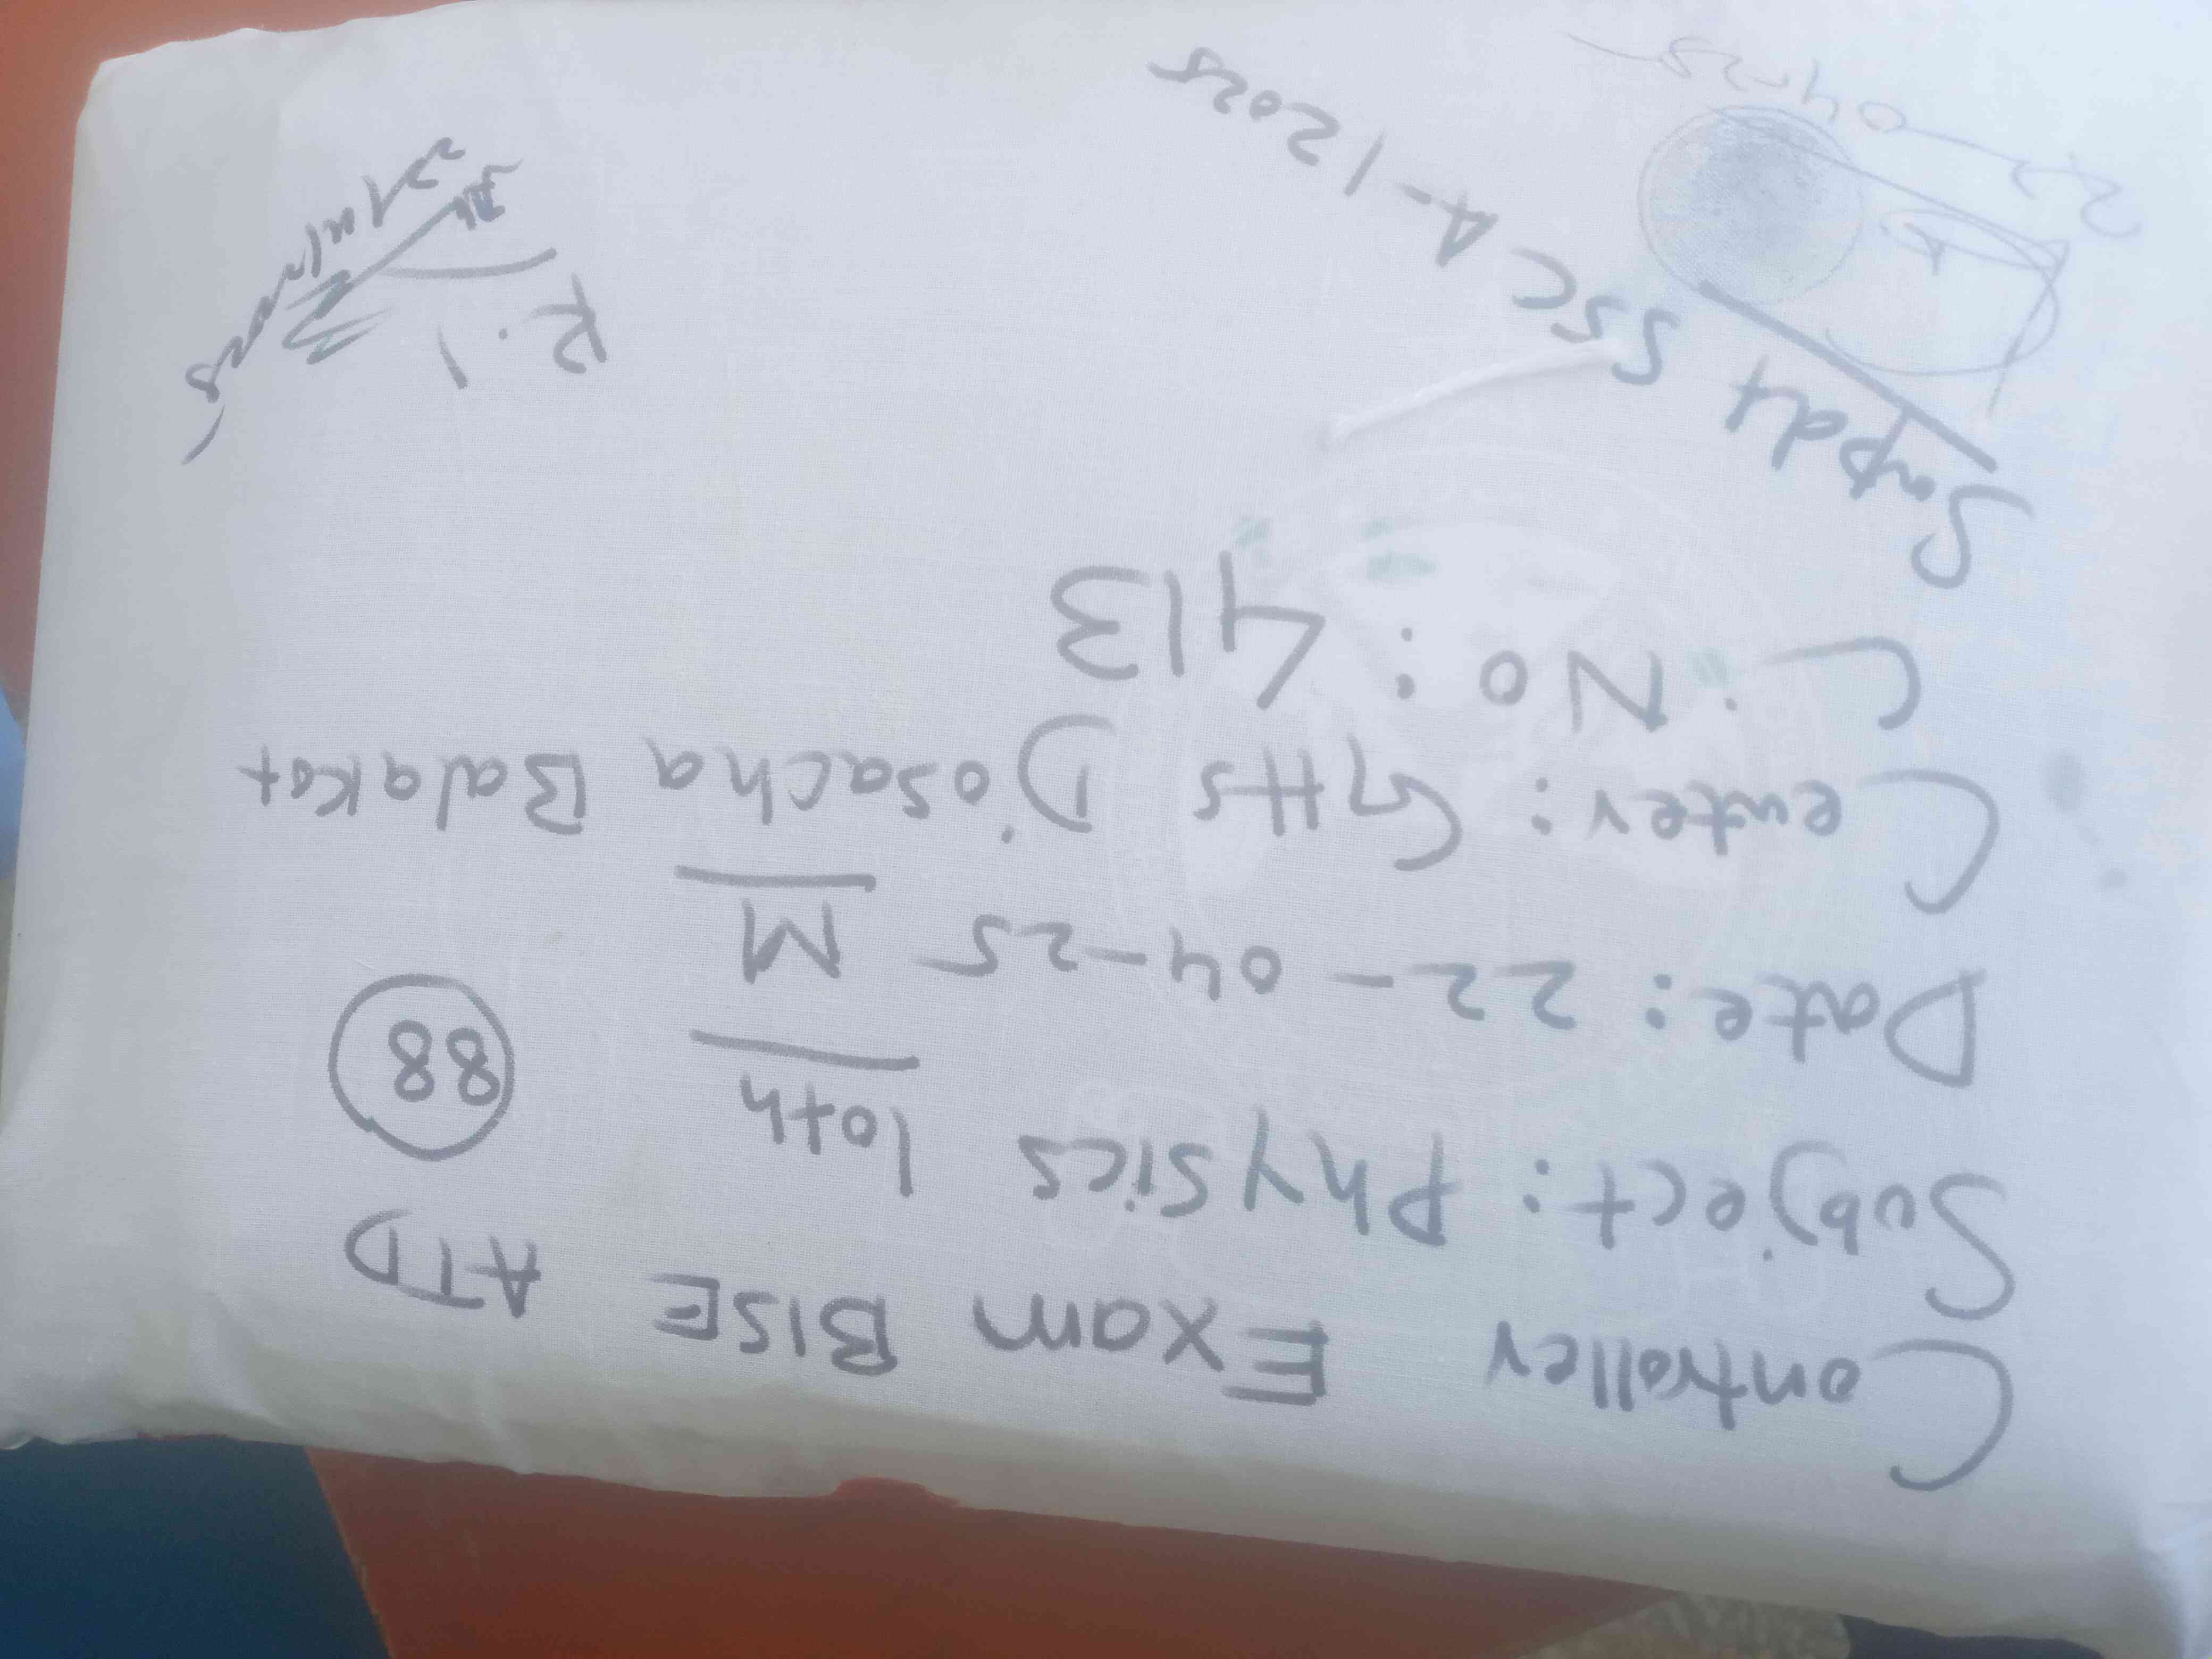 Controller Exam BISE ATD
Subject: Physics 10th 88
Date: 22-04-25 M
Center: GHS Dosacha Balakot
C. No: 413
Supdt SSC A-1 2025
R.I
22-04-25